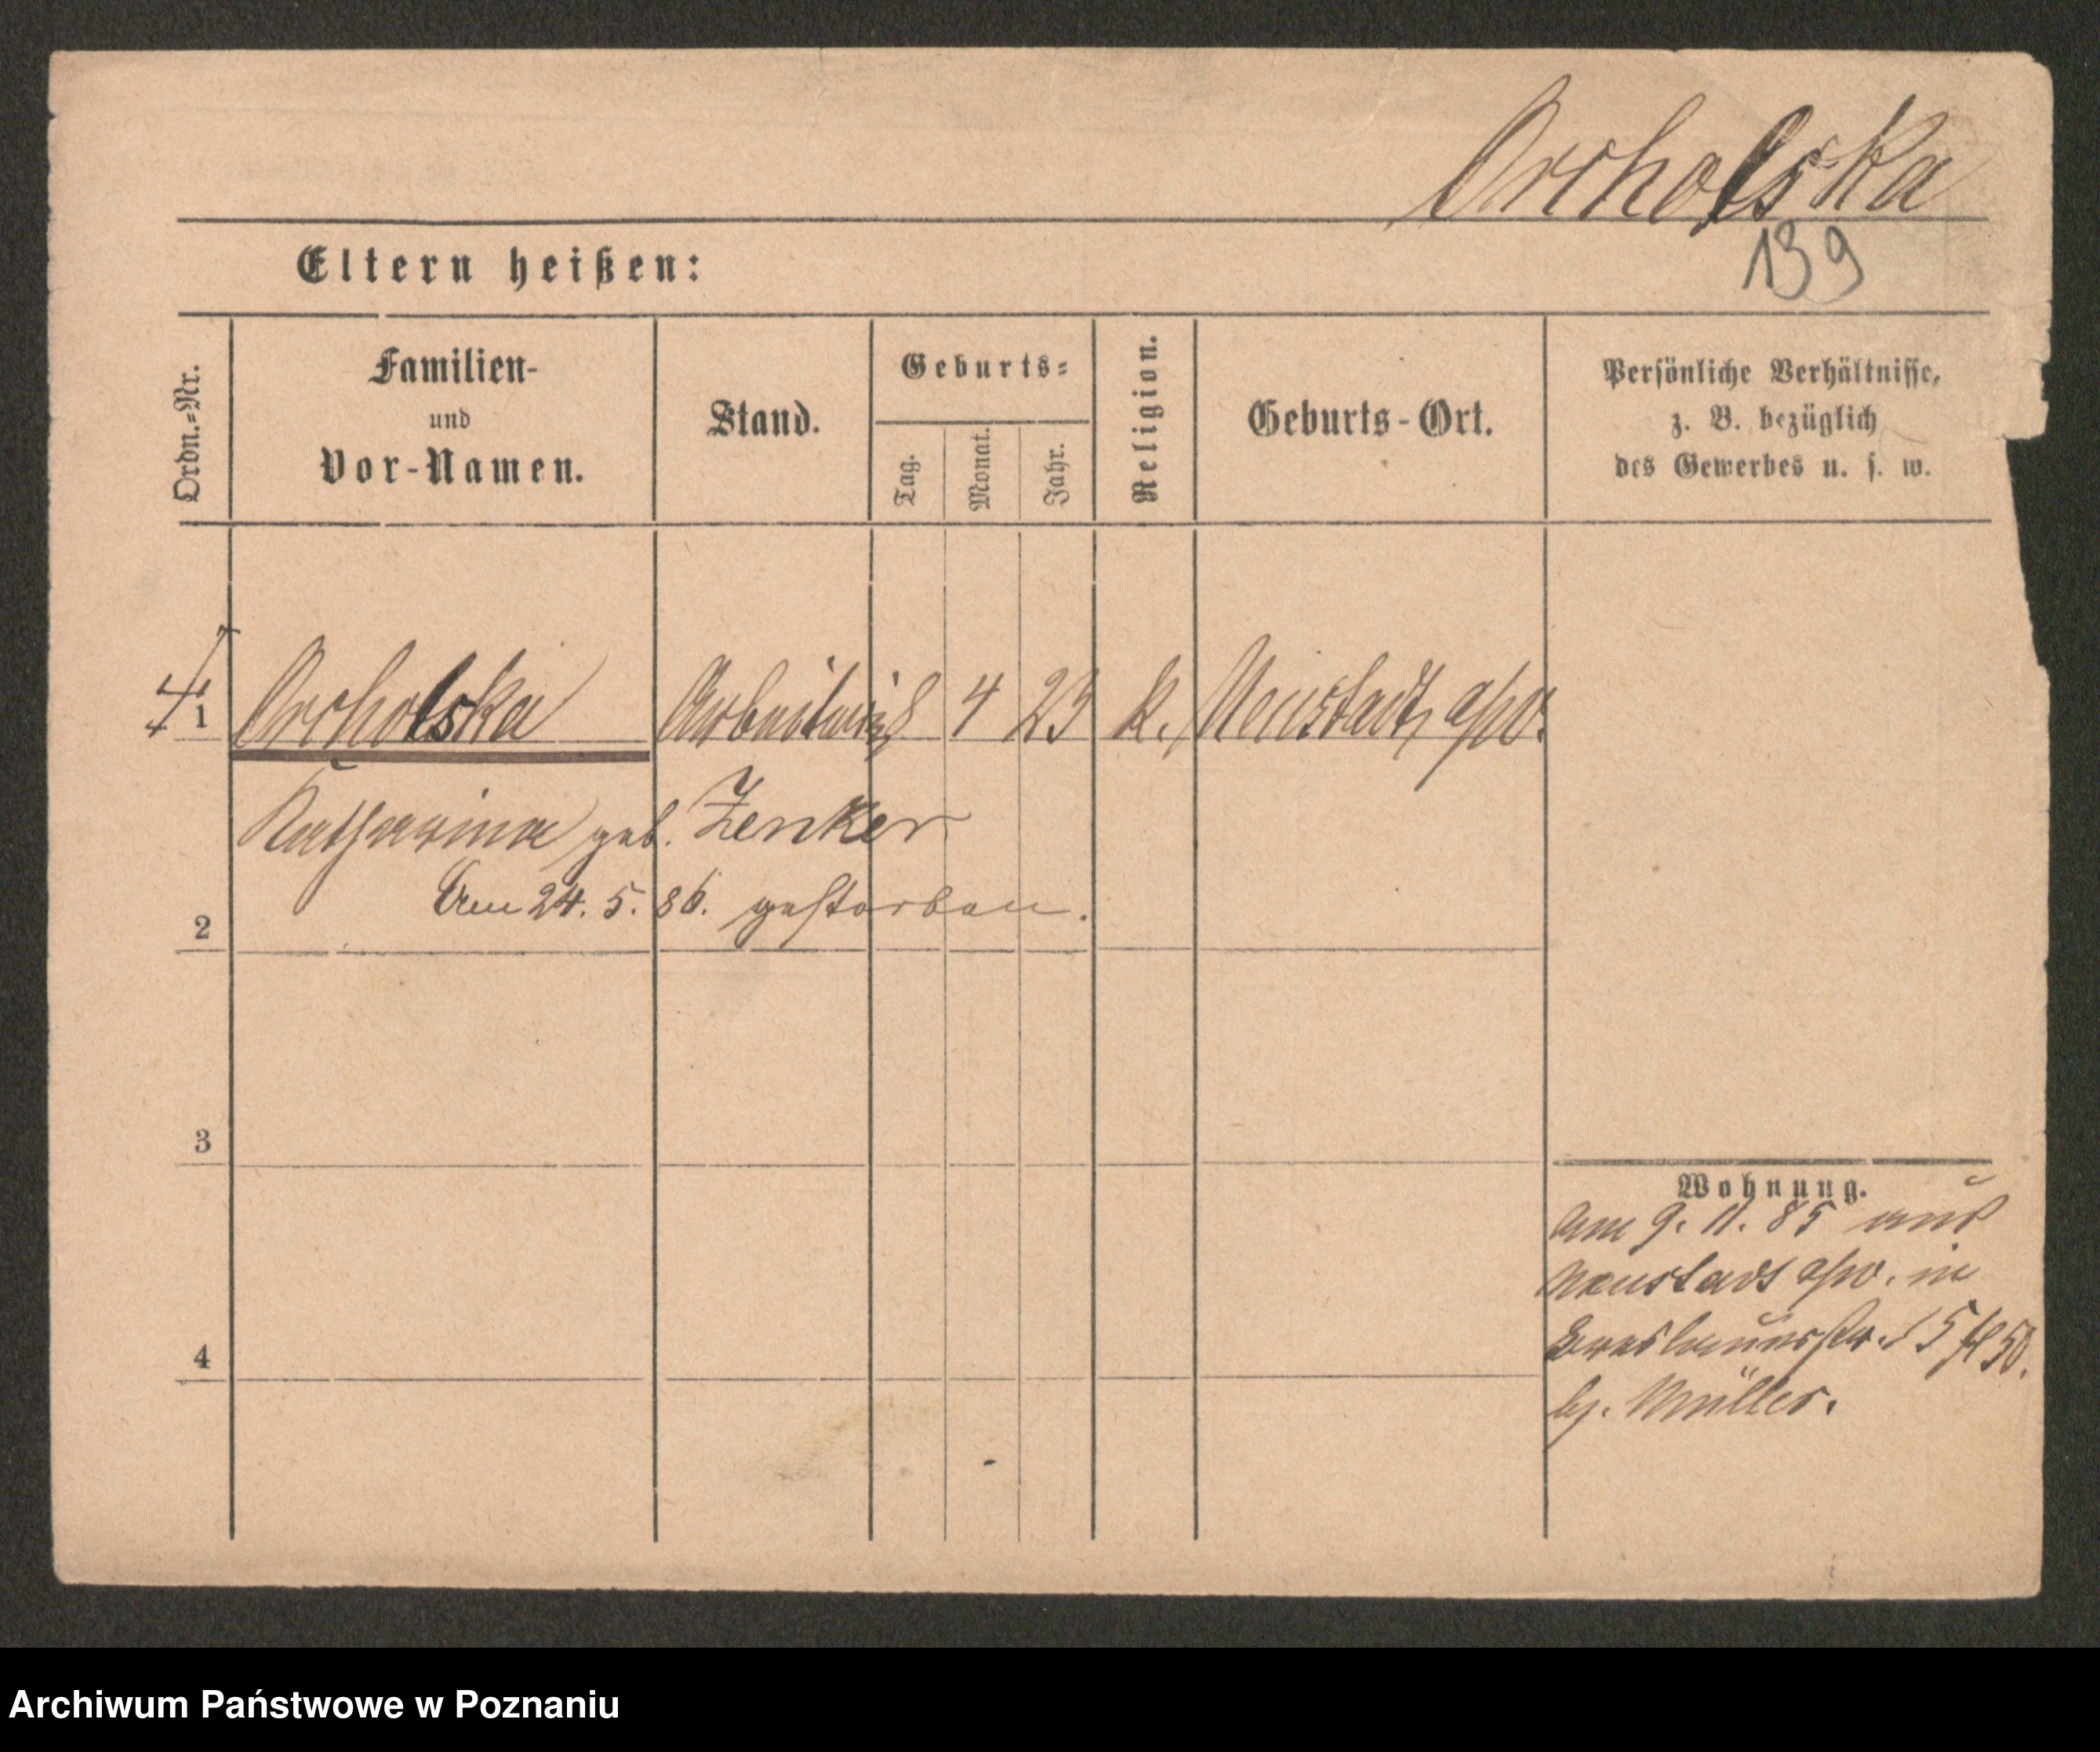 Orcholska
139
Eltern heißen:
Ordn.=Nr.
Familien-
und
Vor-Namen.
Stand.
Geburts=
Tag.
Monat.
Jahr.
Religion.
Geburts-Ort.
Persönliche Verhältnisse,
z. B. bezüglich
des Gewerbes u. s. w.
1 Orcholska 4 23 k. Neustadt a/W.
Katharina geb. Zenker
Am 24. 5. 86. gestorben.
2
3
4
Wohnung.
Am 9. 11. 85 aus
Neustadt a/W. in
Breslauerstr. 15
bj. Müller.
Archiwum Państwowe w Poznaniu